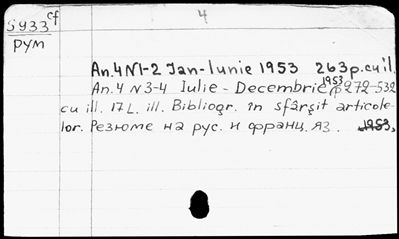 4
S933 cf
РУМ
An. 4 N1-2 Jan-Iunie 1953 263 p. cu il.
An. 4 N 3-4 Iulie - Decembrie 1953 p 272-532
cu ill. 17 L. ill. Bibliogr. în sfârşit articole-
lor. Резюме на рус. и франц. яз. 1953,